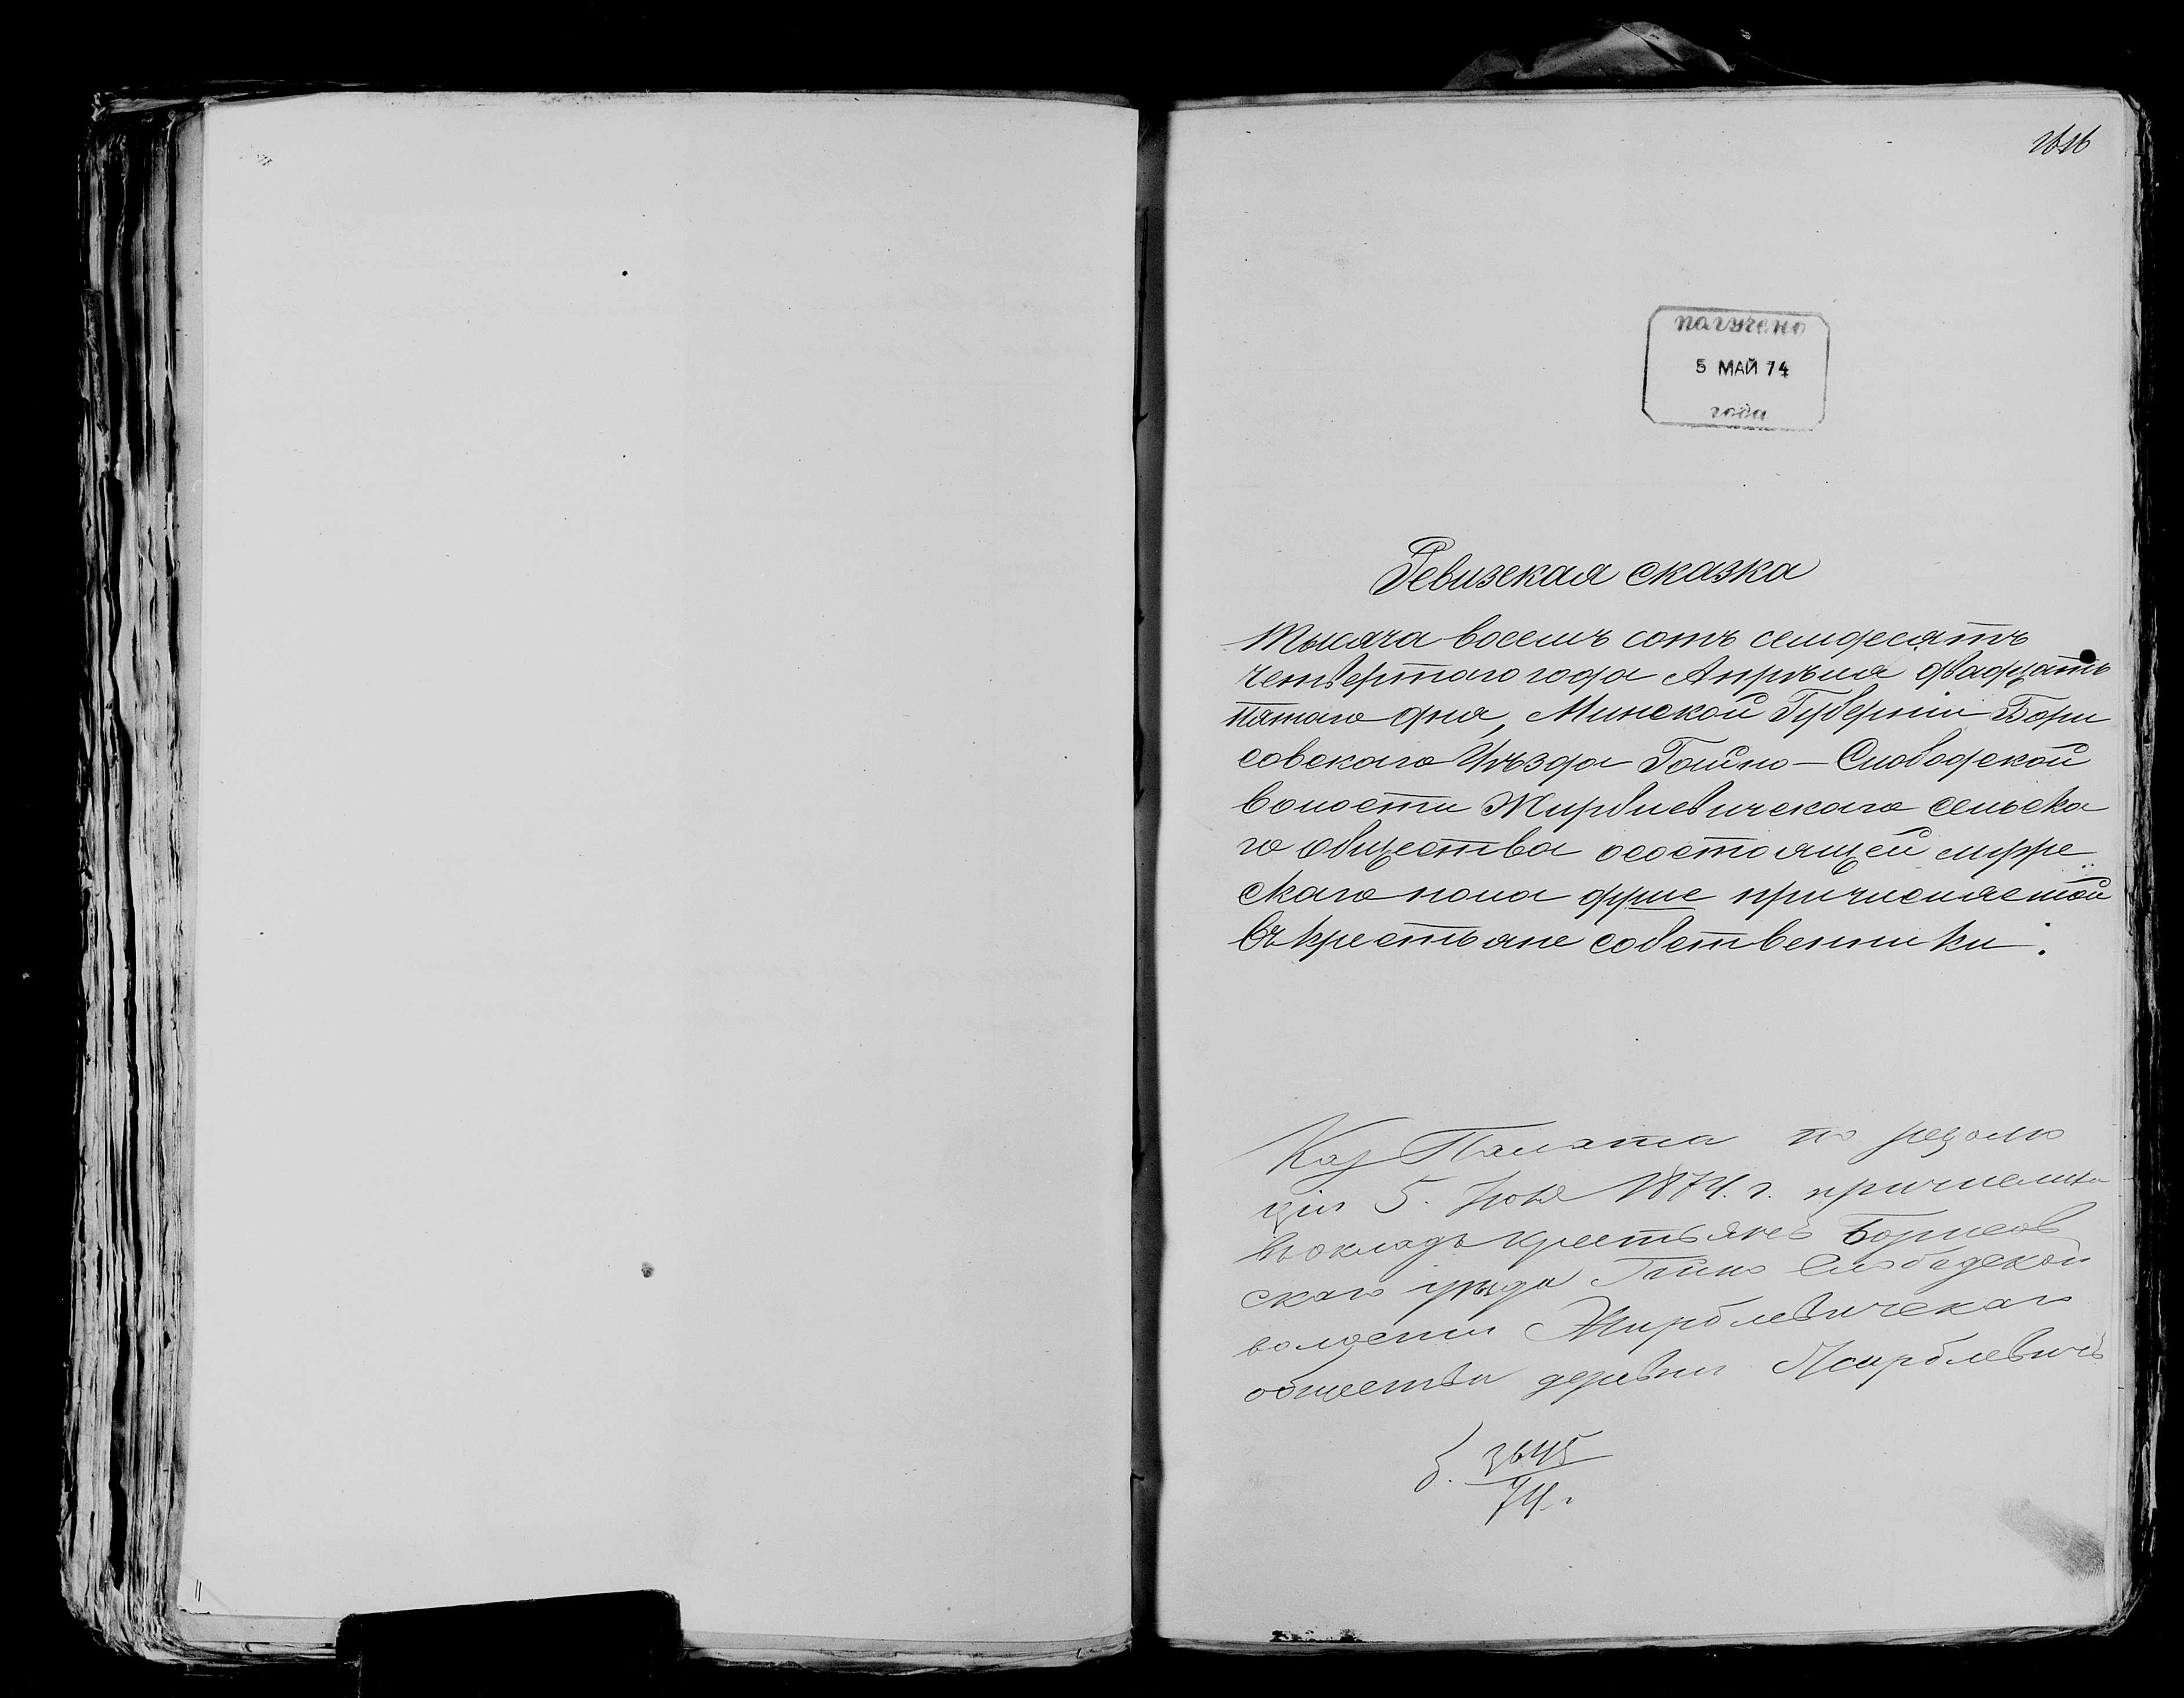 получено
5 МАЙ 74
года
Ревизская сказка
Тысяча восемъ сотъ семдесятъ
четвертаго года Апрѣля двадцать
пятаго дня, Минской Губерніи Бори
совскаго Уѣзда Гойно-Слободской
волости Жирблевичскаго сельска
го общества осостоящей мужс
скаго пола душе причисляемой
въ крестьяне собственники.
Каз Палата по резолю
ціи 5. Іюня 1874. г. причислила
въ окладъ крестьянъ Борисов
скаго уѣзда Гойно Слободской
волости Жирблевичскаго
общества деревни Жирблевичъ
3645
74 г